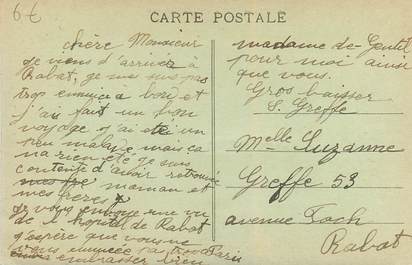 6€
CARTE POSTALE
chère Monsieur
je viens d'arriver à
Rabat, je me suis pas
trop ennuiée a bord et
j'ai fait un bon
voyage j'ai été un
peu malade mais ca
na rien été je suis
contente d'avoir retrouvée
mes fre maman et
mes frères x
je vous envoie une vu
de l hopital de Rabat
j'espère que vous ne
vous ennuiée pas trop a Paris
embrasser bien
madame de Gentil
pour moi ainsi
que vous.
Gros baisser
S. Greffe
Melle Suzanne
Greffe 53
avenue Foch
Rabat